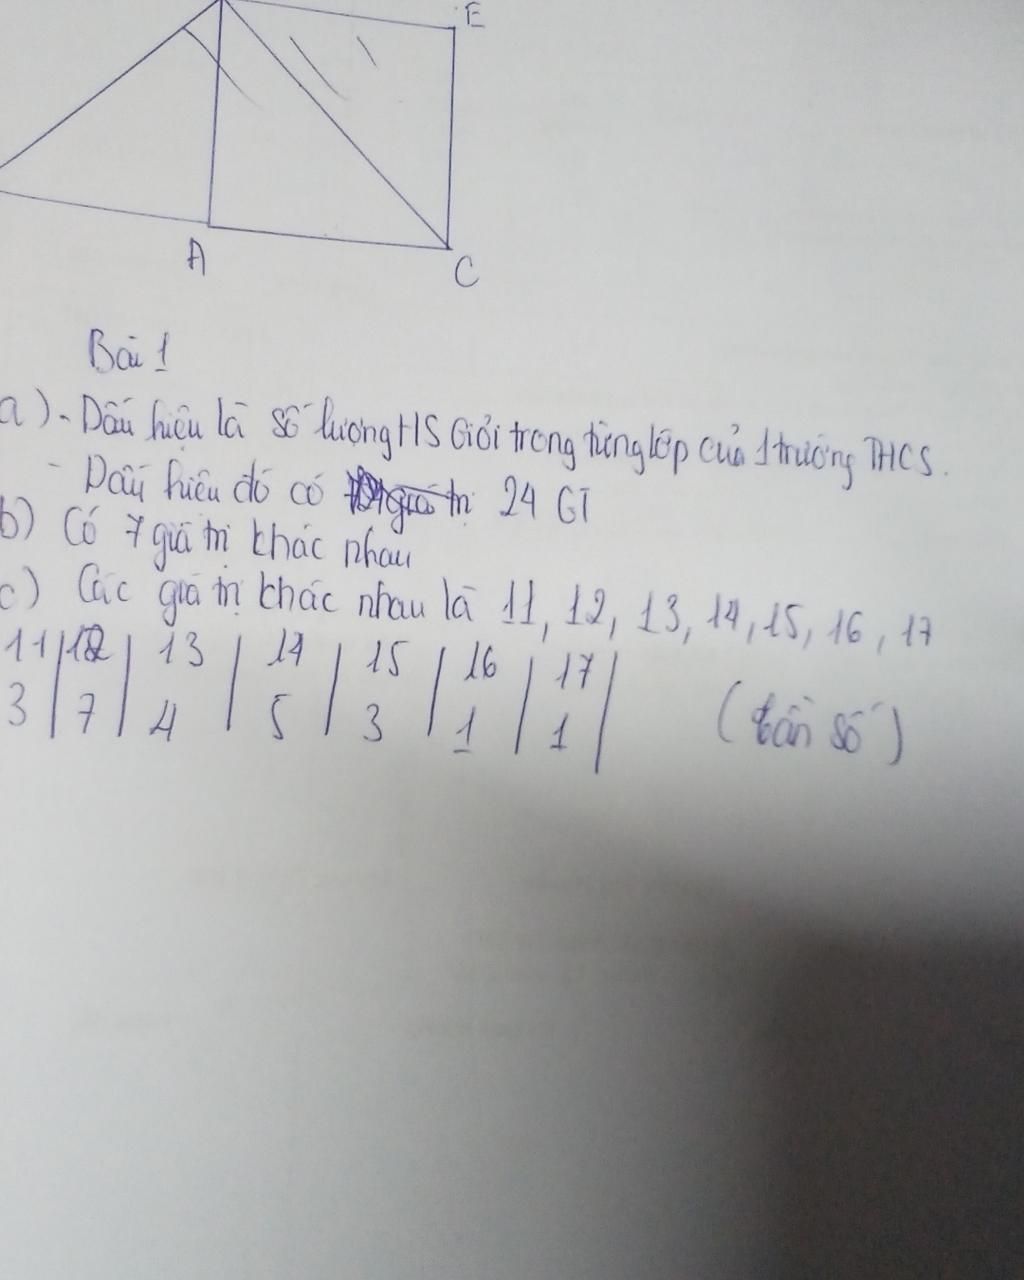 E
A
C
Bài 1
a) - Dấu hiệu là số lượng HS Giỏi trong từng lớp của 1 trường THCS.
- Dấu hiệu đó có giá trị 24 GT
b) Có 7 giá trị khác nhau
c) Các giá trị khác nhau là 11, 12, 13, 14, 15, 16, 17
11 | 12 | 13 | 14 | 15 | 16 | 17 |
3 | 7 | 4 | 5 | 3 | 1 | 1 | (tần số)